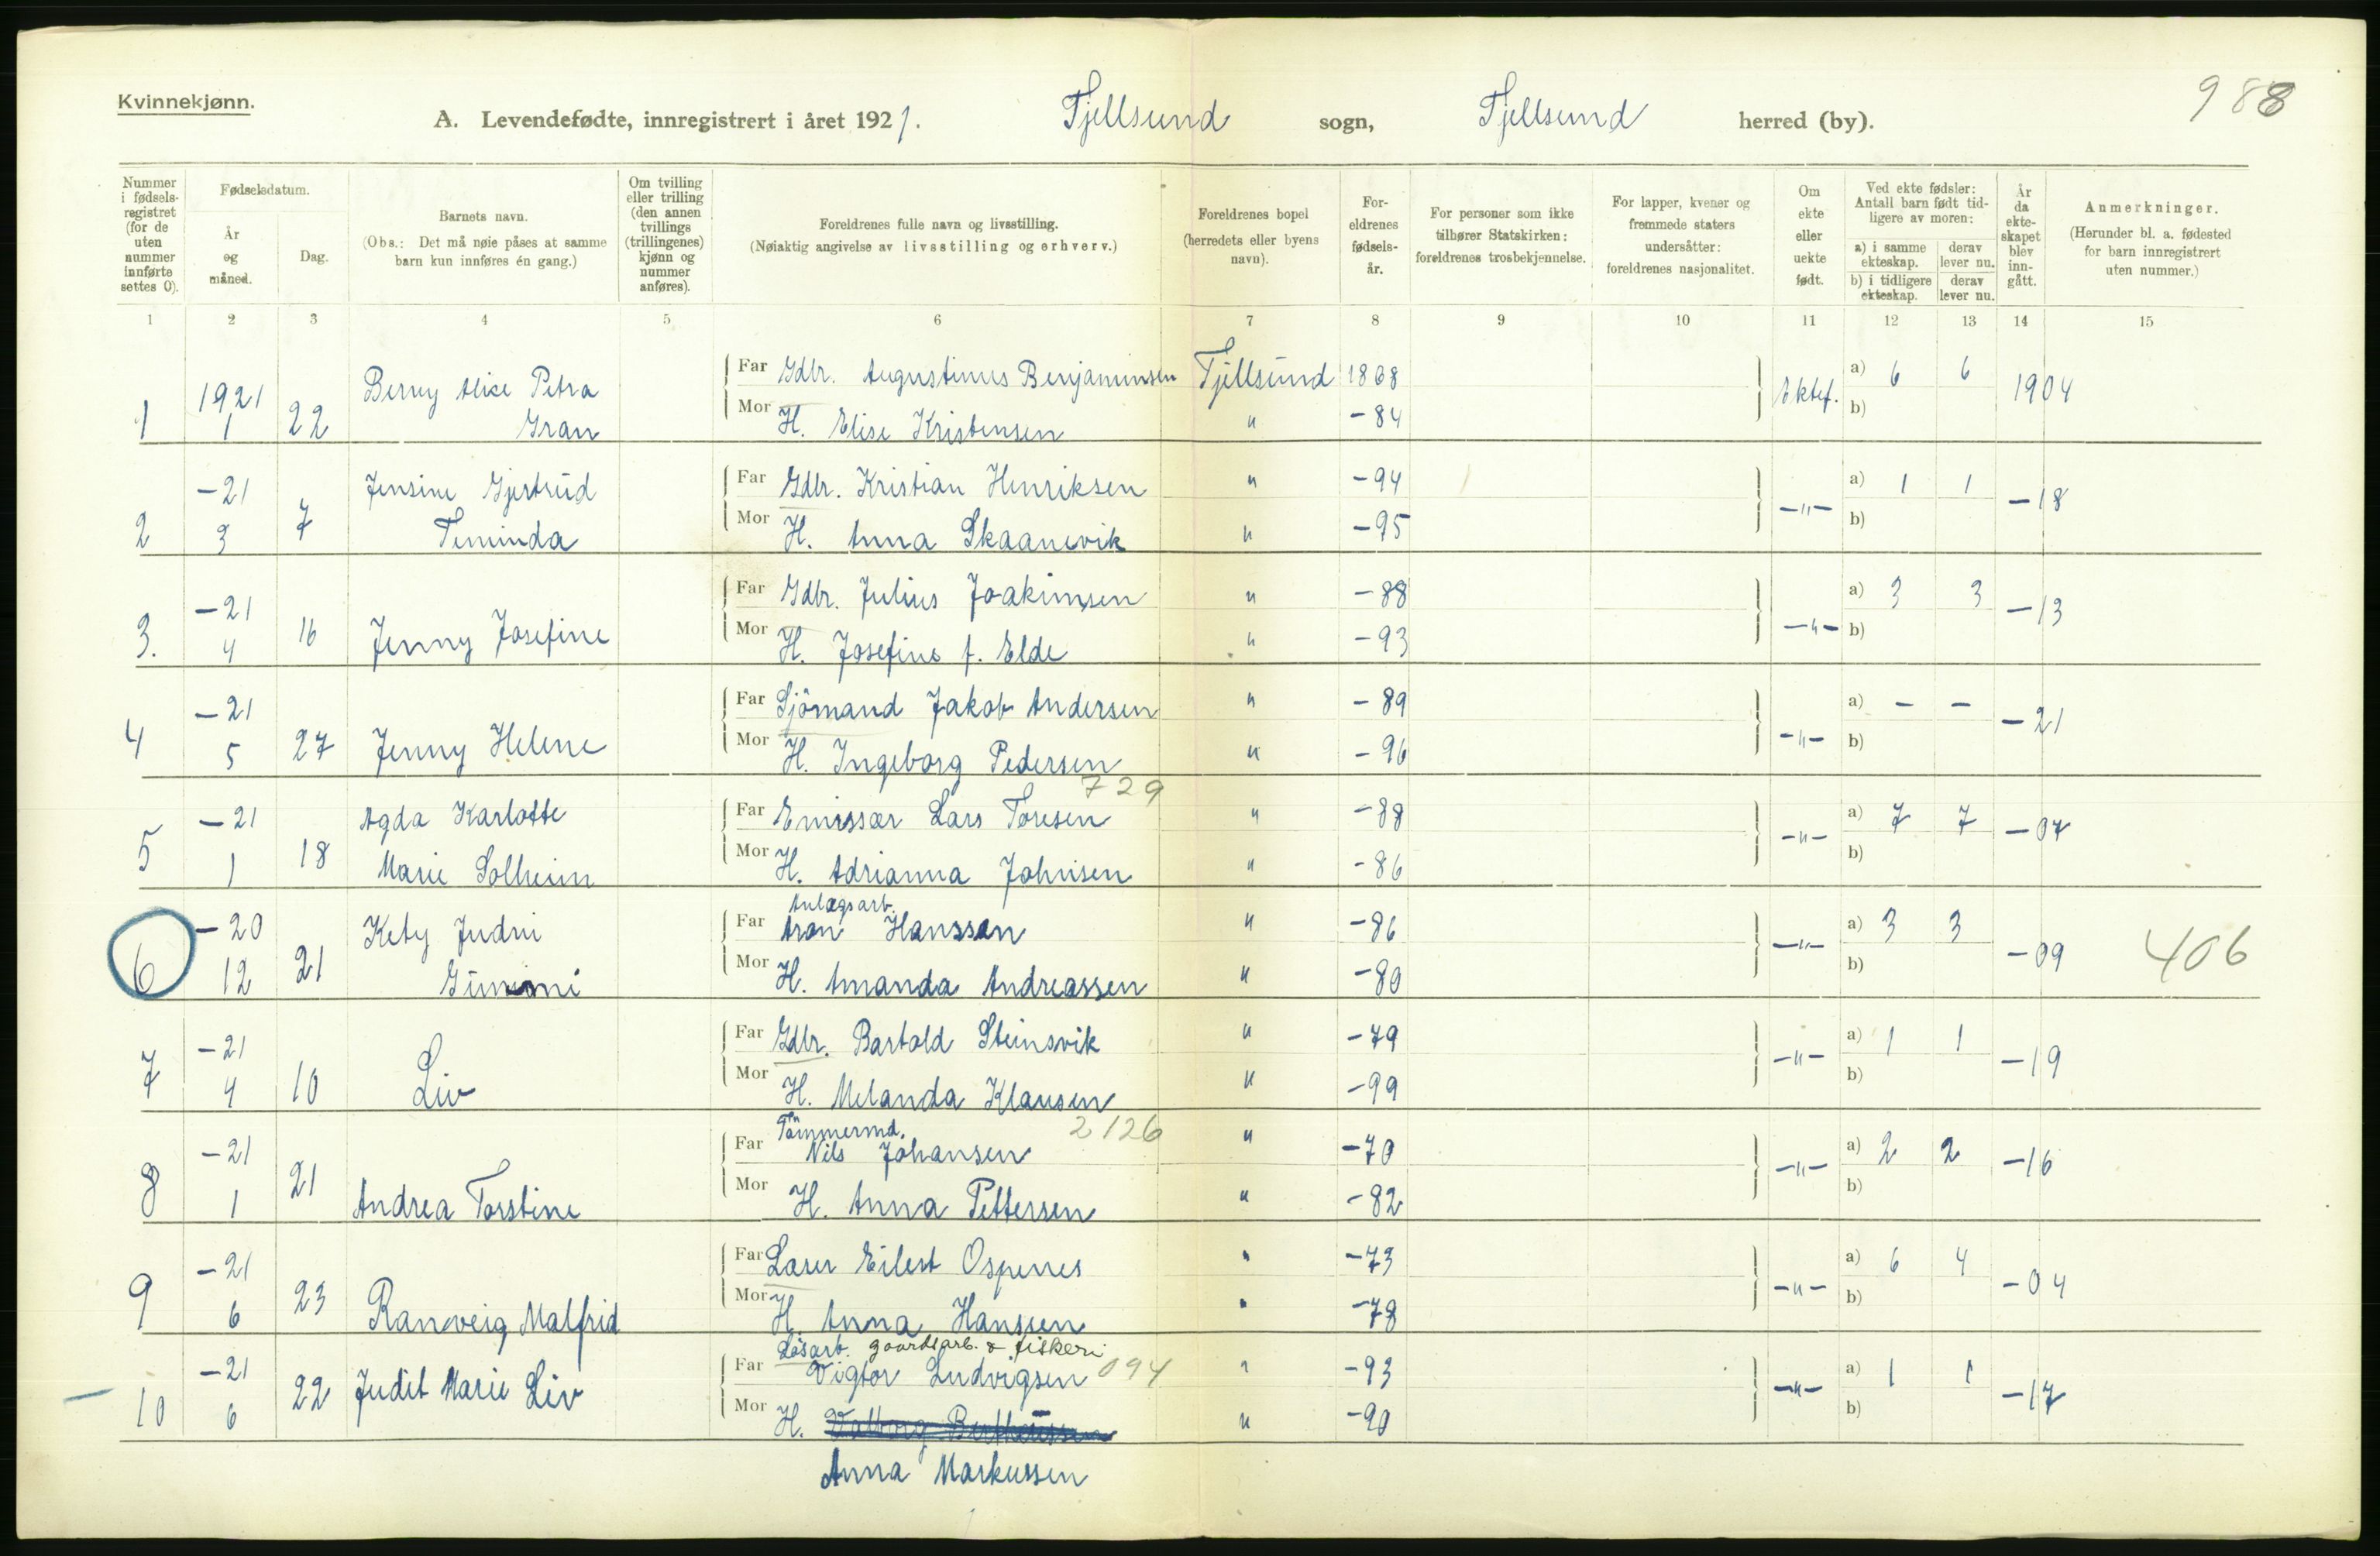 Kvinnekjønn.
988
A. Levendefødte, innregistrert i året 1921. Tjellsund sogn, Tjellsund herred (by).
Nummer i fødselsregistret (for de uten nummer innførte settes 0).
Fødselsdatum.
År og måned.
Dag.
Barnets navn.
(Obs.: Det må nøie påses at samme barn kun innføres én gang.)
Om tvilling eller trilling (den annen tvillings (trillingenes) kjønn og nummer anføres).
Foreldrenes fulle navn og livsstilling.
(Nøiaktig angivelse av livsstilling og erhverv.)
Foreldrenes bopel (herredets eller byens navn).
Foreldrenes fødselsår.
For personer som ikke tilhører Statskirken: foreldrenes trosbekjennelse.
For lapper, kvener og fremmede staters undersåtter: foreldrenes nasjonalitet.
Om ekte eller uekte født.
Ved ekte fødsler: Antall barn født tidligere av moren:
a) i samme ekteskap. derav lever nu.
b) i tidligere ekteskap. derav lever nu.
År da ekteskapet blev inngått.
Anmerkninger.
(Herunder bl. a. fødested for barn innregistrert uten nummer.)
1 2 3 4 5 6 7 8 9 10 11 12 13 14 15
1 1921 1 22 Berny Alise Petra Gran
Far Gdbr. Augustinus Benjaminsen Tjellsund 1868 Ektef. a) 6 6 1904
Mor H. Elise Kristensen " -84 b)
2 -21 3 7 Jensine Gjertrud Feminda
Far Gdbr. Kristian Henriksen " -94 -"- a) 1 1 -18
Mor H. Anna Skaanevik " -95 b)
3. -21 4 16 Jenny Josefine
Far Gdbr. Julius Joakimsen " -88 -"- a) 3 3 -13
Mor H. Josefine f. Elde " -93 b)
4 -21 5 27 Jenny Helene
Far Sjömand Jakob Andersen " -89 -"- a) - - -21
Mor H. Ingeborg Pedersen " -96 b)
729
5 -21 1 18 Agda Karlotte Marie Solheim
Far Emissær Lars Toresen " -88 -"- a) 7 7 -07
Mor H. Adrianna Johnsen " -86 b)
6 -20 12 21 Kety Judni
Anlægsarb.
Far Aron Hanssen " -86 -"- a) 3 3 -09 406
Mor H. Amanda Andreassen " -80 b)
7 -21 4 10 Liv
Far Gdbr. Bartold Steinsvik " -79 -"- a) 1 1 -19
Mor H. Melanda Klausen " -99 b)
8 -21 1 21 Andrea Torstine
Tömmermd. 2126
Far Nils Johansen " -70 -"- a) 2 2 -16
Mor H. Anna Pettersen " -82 b)
9 -21 6 23 Ranveig Malfrid
Far Lærer Eilert Ospenes " -73 -"- a) 6 4 -04
Mor H. Anna Hanssen " -78 b)
10 -21 6 22 Judit Marie Liv
Løsarb. gaardsarb. & fiskeri
Far Vigtor Ludvigsen 094 " -93 -"- a) 1 1 -17
Mor H. Valborg Bertheussen " -90 b)
Anna Markussen